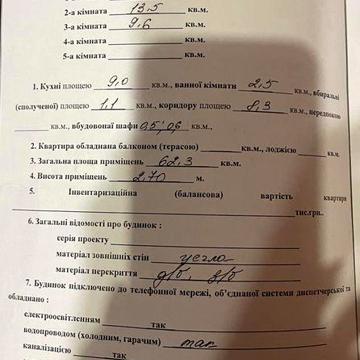 2-а кімната 13,5 кв.м.
3-а кімната 9,6 кв.м.
4-а кімната кв.м.
5-а кімната кв.м.
1. Кухні площею 9,0 кв.м., ванної кімнати 2,5 кв.м., вбиральні
(сполученої) площею 1,1 кв.м., коридору площею 8,3 кв.м., передпокою
кв.м., вбудовоної шафи 0,5; 0,6 кв.м.,
2. Квартира обладнана балконом (терасою) кв.м., лоджією кв.м.
3. Загальна площа приміщень 62,3 кв.м.
4. Висота приміщень 2,70 м.
5. Інвентаризаційна (балансова) вартість квартири
тис.грн.
6. Загальні відомості про будинок :
серія проекту
матеріал зовнішніх стін цегла
матеріал перекриття з/б
7. Будинок підключено до телефонної мережі, об'єднаної системи диспетчерської та
обладнано :
електроосвітленням так
водопроводом (холодним, гарячим) так
каналізацією так